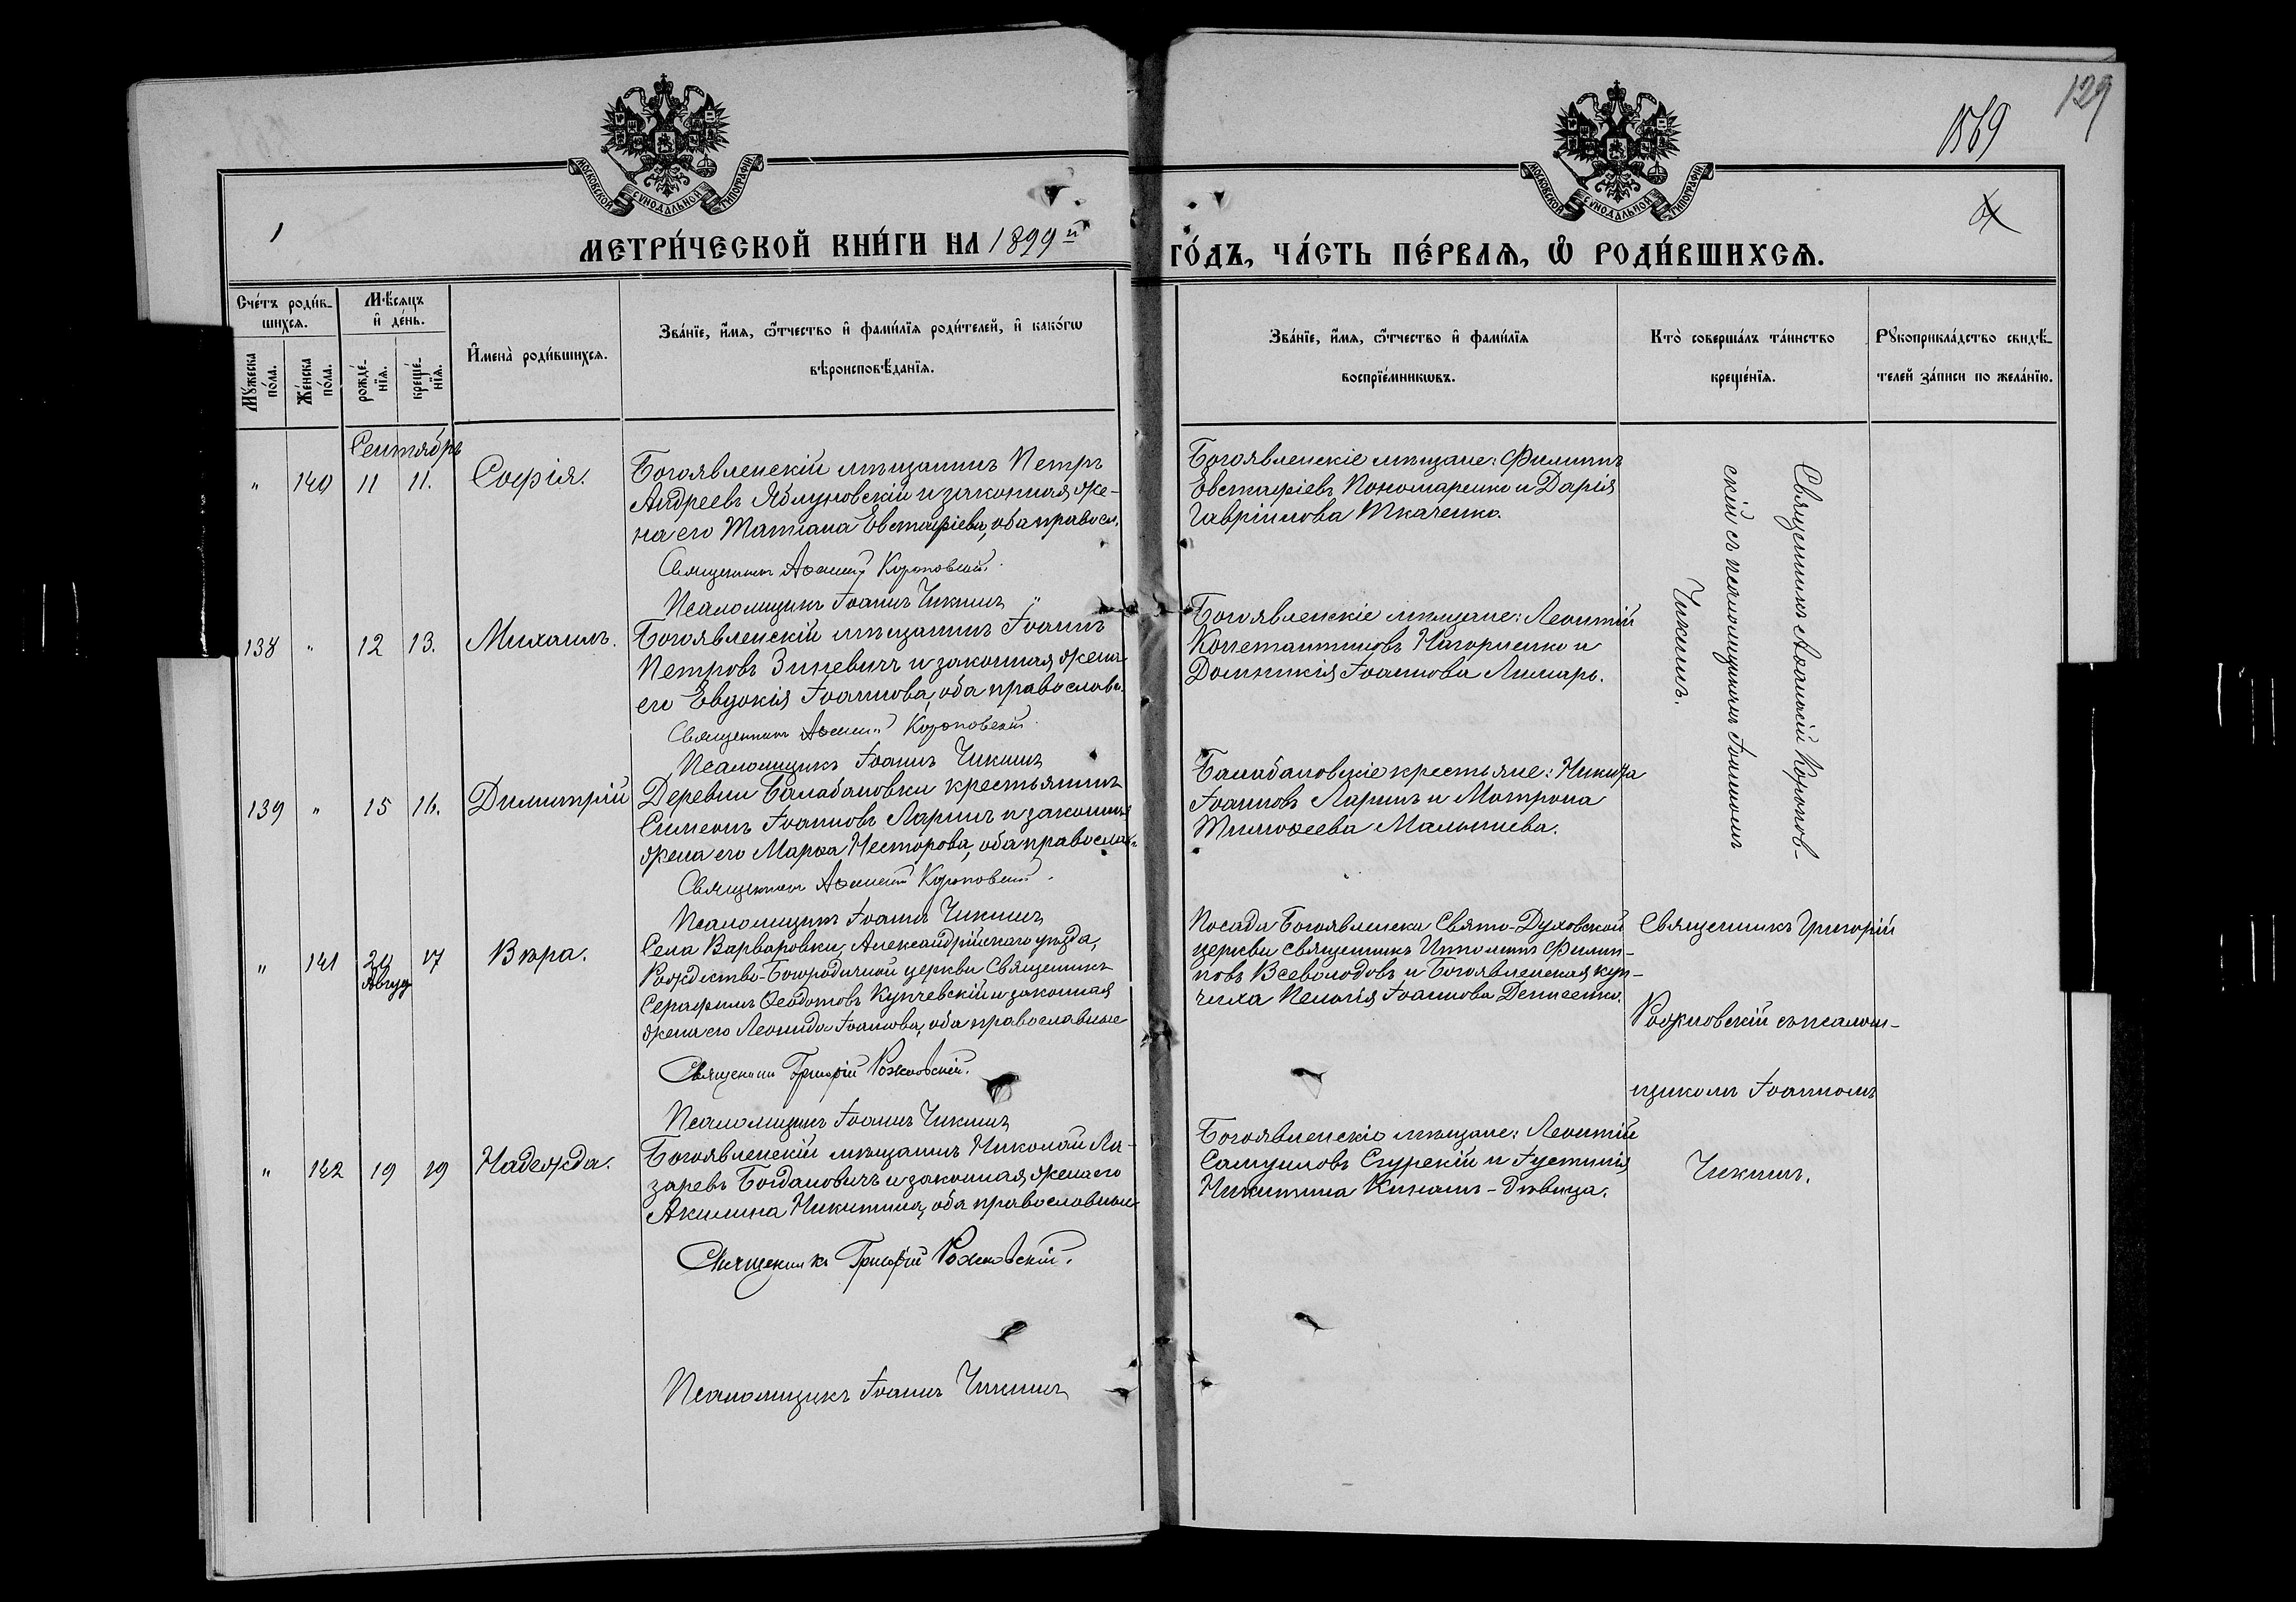 129
1569
МОСКОВСКОЙ СѴНОДАЛЬНОЙ ТИПОГРАФІИ.
МОСКОВСКОЙ СѴНОДАЛЬНОЙ ТИПОГРАФІИ.
1
МЕТРИ́ЧЕСКОЙ КНИ́ГИ НА 1899й ГО́ДЪ, ЧА́СТЬ ПЕ́РВАѦ, Ѡ РОДИ́ВШИХСѦ.
Сче́тъ роди́в-
шихсѧ.
Мꙋ́жеска по́ла.
Же́нска по́ла.
Мѣ́сѧцъ и де́нь.
рожде́-нїѧ.
креще́-нїѧ.
Имена̀ роди́вшихсѧ.
Зва́нїе, и́мѧ, ѻ҆́тчество и фами́лїѧ роди́телей, и како́гѡ
вѣроисповѣ́данїѧ.
Зва́нїе, и́мѧ, ѻ҆́тчество и фами́лїѧ
воспрїе́мникѡвъ.
Кто̀ соверша́лъ та́инство
креще́нїѧ.
Рꙋкоприкла́дство свидѣ́-
телей за́писи по жела́нїю.
Сентябрь
" 140 11 11. Софія.
Богоявленскій мѣщанинъ Петръ
Андреевъ Яблуновскій и законная же-
на его Татіана Евстафіева, оба правосл.
Священникъ Аѳанасій Короповскій.
Псаломщикъ Іоаннъ Чикинъ
Богоявленскіе мѣщане: Филиппъ
Евстафіевъ Пономаренко и Дарія
Гавріилова Ткаченко.
Священникъ Аѳанасій Коропов-
скій съ псаломщикомъ Іоанномъ
Чикинъ.
138 " 12 13. Михаилъ.
Богоявленскій мѣщанинъ Іоаннъ
Петровъ Зиневичъ и законная жена
его Евдокія Іоаннова, оба православн.
Священникъ Аѳанасій Короповскій
Псаломщикъ Іоаннъ Чикинъ
Богоявленскіе мѣщане: Леонтій
Константиновъ Нагорненко и
Домникія Іоаннова Лимарь.
139 " 15 16. Димитрій
Деревни Балабановки крестьянинъ
Симеонъ Іоанновъ Ларинъ и законная
жена его Марѳа Несторова, оба православн.
Священникъ Аѳанасій Короповскій.
Псаломщикъ Іоаннъ Чикинъ
Балабановскіе крестьяне: Никита
Іоанновъ Ларинъ и Матрона
Тимоѳеева Малышева.
" 141 20 Авгус 17 Вѣра.
Села Варваровки, Александрійскаго уѣзда,
Рождество-Богородичной церкви Священникъ
Серафимъ Ѳеодотовъ Купчевскій и законная
жена его Леонида Іоаннова, оба православные
Священникъ Григорій Рожковскій.
Псаломщикъ Іоаннъ Чикинъ
Посада Богоявленска Свято-Духовской
церкви священникъ Ипполитъ Филип-
повъ Всеволодовъ и Богоявленская куп-
чиха Пелагія Іоаннова Денисенко.
Священникъ Григорій
Рожковскій съ псалом-
щикомъ Іоанномъ
Чикинъ.
" 142 19 19 Надежда.
Богоявленскій мѣщанинъ Николай Ла-
заревъ Богдановичъ и законная жена его
Акилина Никитина, оба православные
Священникъ Григорій Рожковскій.
Псаломщикъ Іоаннъ Чикинъ
Богоявленскіе мѣщане: Леонтій
Самуиловъ Сгурскій и Іустинія
Никитина Кинашъ-дѣвица.